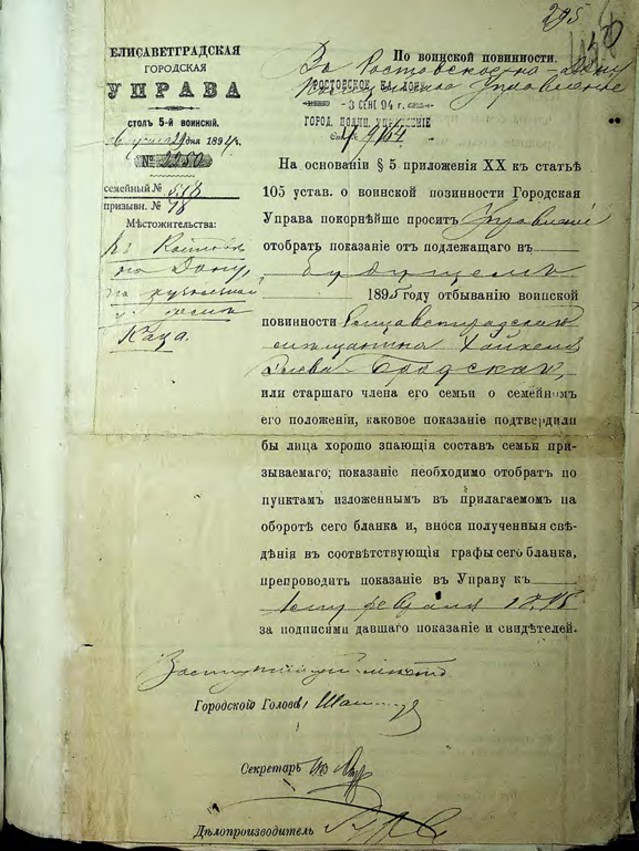 295
ЕЛИСАВЕТГРАДСКАЯ
ГОРОДСКАЯ
УПРАВА
СТОЛЪ 5-й ВОИНСКІЙ.
1894 г.
№ 2250
семейный № 518
призывн. № 78
Мѣстожительства:
въ Ростовѣ
на Дону,
Каца.
По воинской повинности.
Въ Ростовское на Дону
РОСТОВСКОЕ НА ДОНУ
Полицейское Управленіе
- 3 СЕНТ 94 г.
ГОРОД. ПОЛИЦ. УПРАВЛЕНІЕ
На основаніи § 5 приложенія XX къ статьѣ
105 устав. о воинской повинности Городская
Управа покорнѣйше проситъ Управленіе
отобрать показаніе отъ подлежащаго въ
будущемъ
1895 году отбыванію воинской
повинности Елисаветградскаго
мѣщанина
Бродскаго,
или старшаго члена его семьи о семейномъ
его положеніи, каковое показаніе подтвердили
бы лица хорошо знающія составъ семьи при-
зываемаго; показаніе необходимо отобрать по
пунктамъ изложеннымъ въ прилагаемомъ на
оборотѣ сего бланка и, внося полученныя свѣ-
дѣнія въ соотвѣтствующія графы сего бланка,
препроводить показаніе въ Управу къ
февраля 1895
за подписями давшаго показаніе и свидѣтелей.
Городского Головы
Секретарь
Дѣлопроизводитель